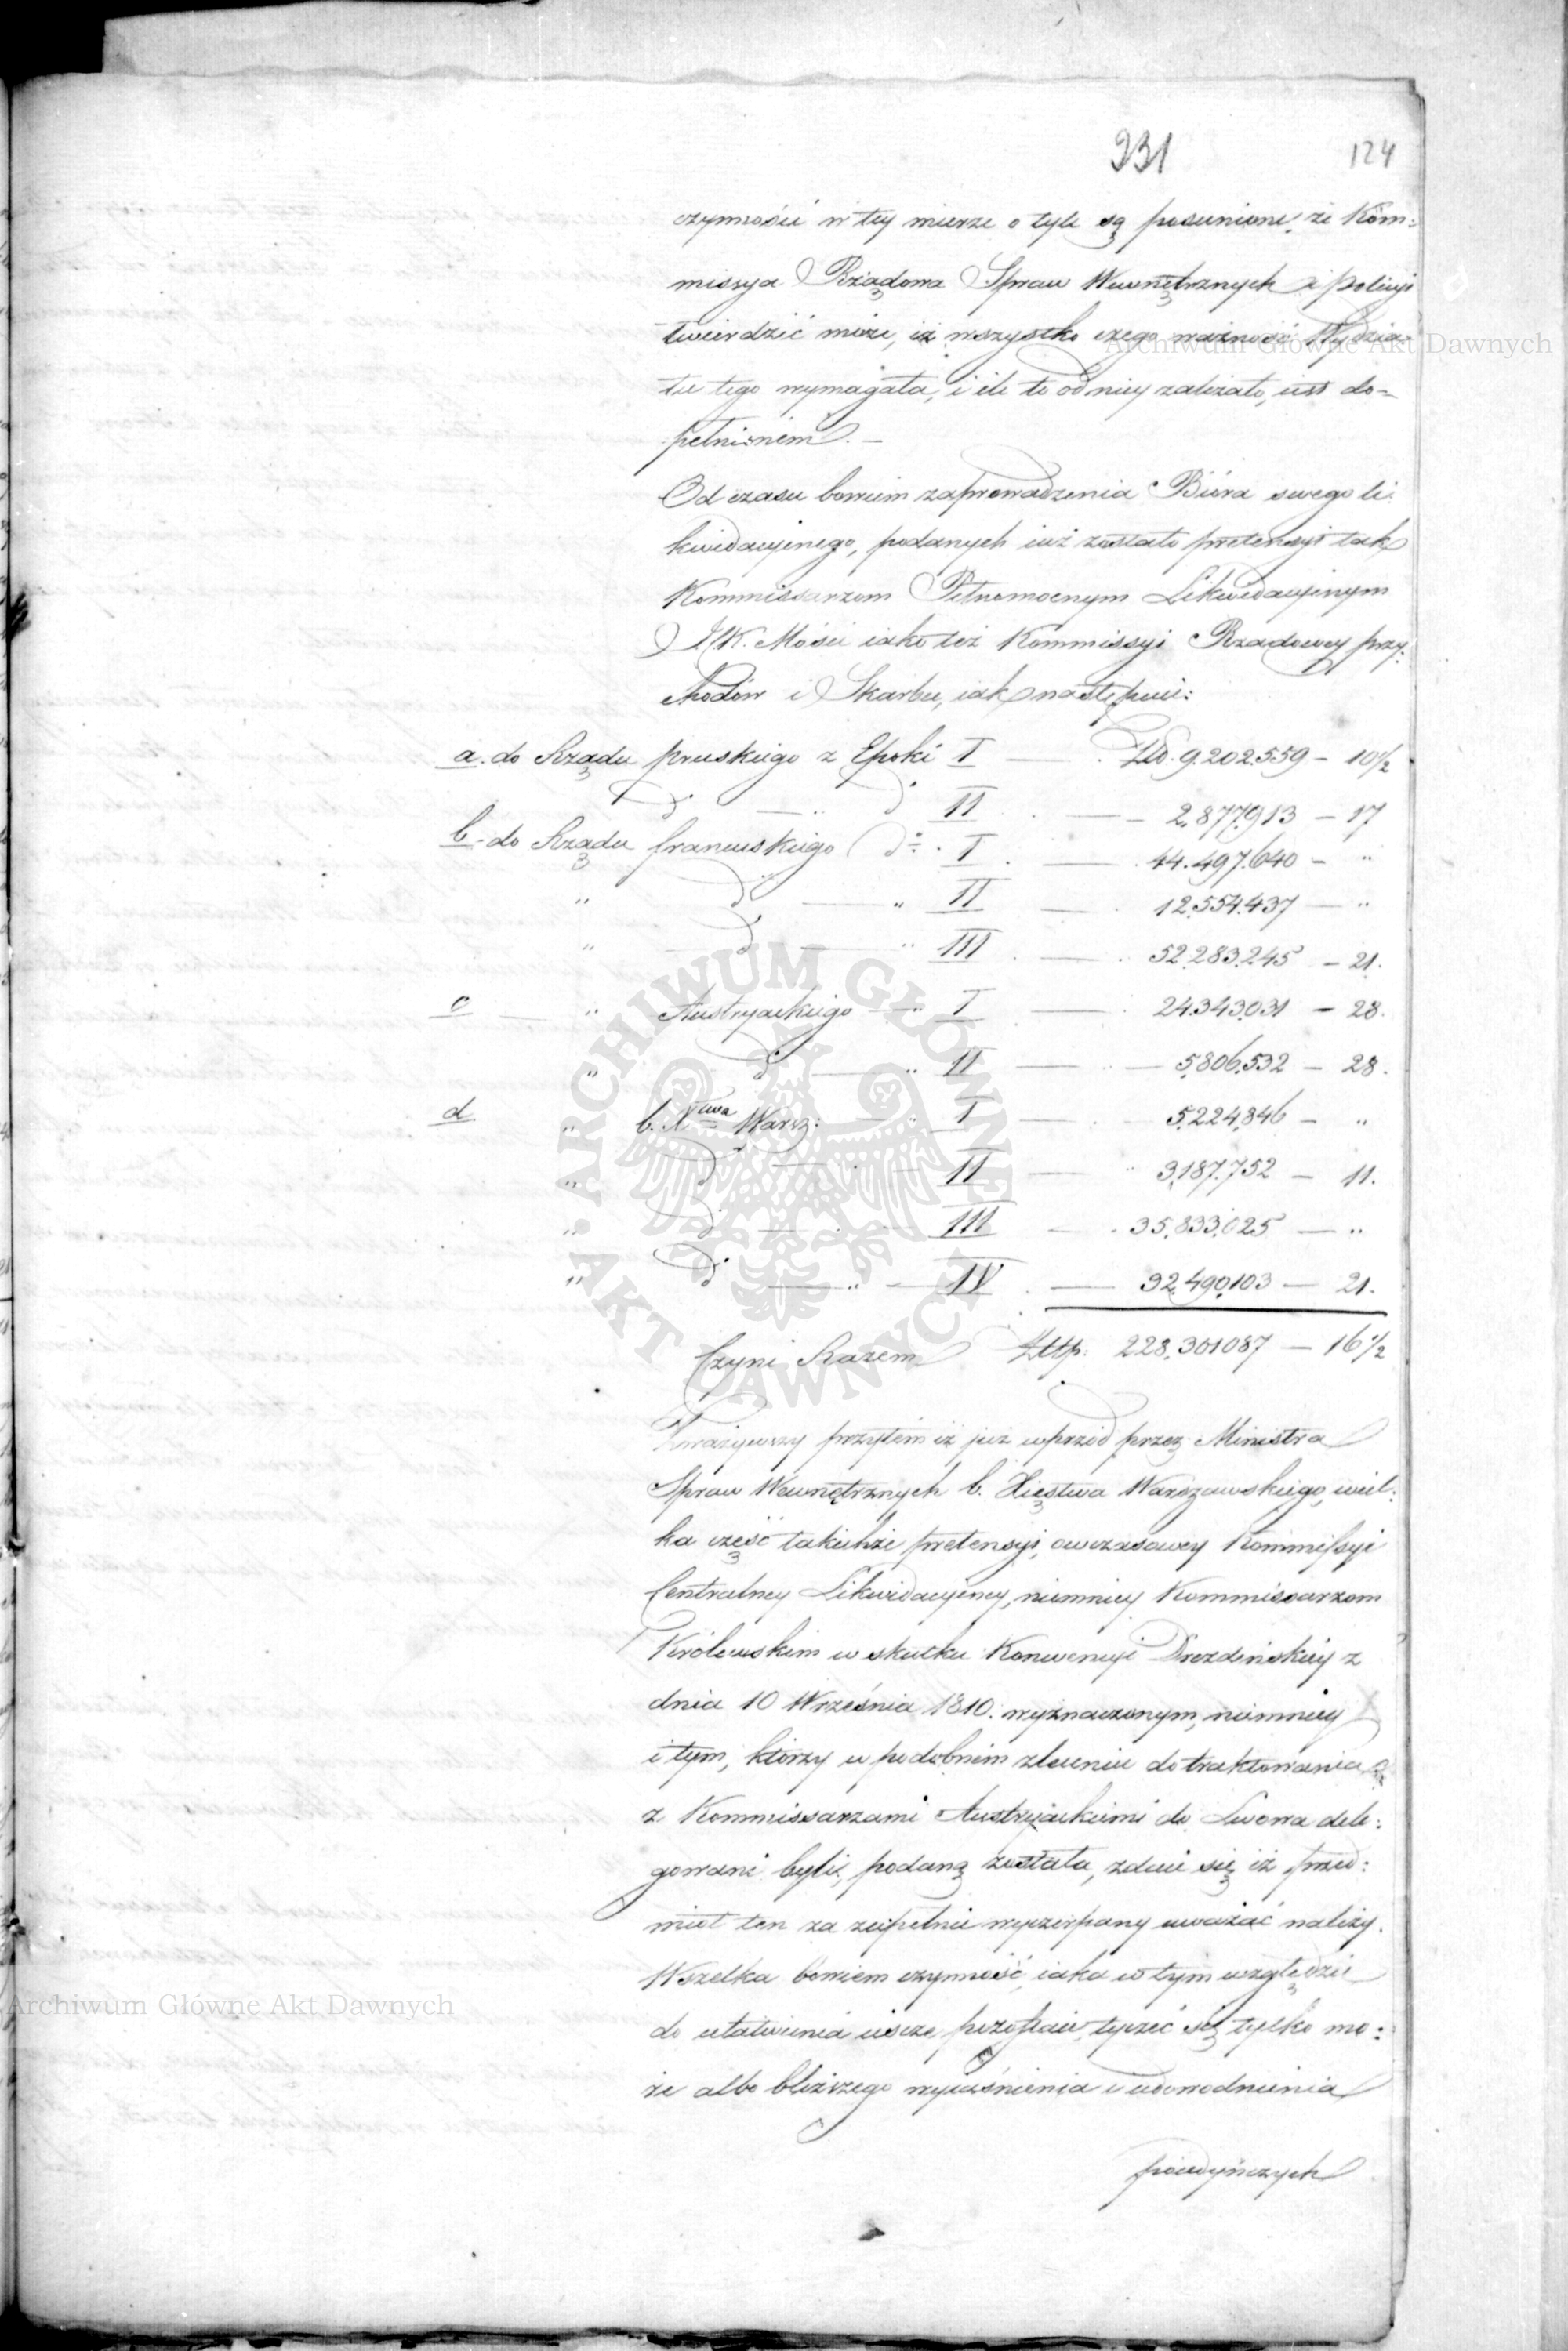 331 124
czynności w tey mierze o tyle są posunione, że Kom-
missya Rządowa Spraw Wewnętrznych i policyi
twierdzić może, iż wszystko czego ważność Wydzia-
łu tego wymagała, i ile to od niey zależało, iest do-
pełnionem. —
Od czasu bowiem zaprowadzenia Bióra swego li-
kwidacyinego, podanych iuż zostało pretensyi tak
Kommissarzom Pełnomocnym Likwidacyinym
J K. Mości iako też Kommissyi Rządowey przy-
chodów i Skarbu, iak następuie:
a. do Rządu pruskiego z Epoki I — Złp. 9.202.559 — 10 1/2
" d° — " d° II — 2,877,913 — 17
b. do Rządu francuskiego d° I — 44.497.640 — "
" d° — " II — 12,554.437 — "
" d° — " III — 52,283,245 — 21.
c — " Austryackiego — " I — 24.343.031 — 28.
" d° — " II — 5,806,532 — 28.
d " b. Xtwa Warsz: — " I — 5,224,846 — "
" d° — " II — 3,187.752 — 11.
" d° — " III — 35,833,025 — "
" d° — " IV — 32,490,103 — 21.
Czyni Razem Złtp: 228,301087 — 16 1/2
Zważywszy przytém iż już wprzód przez Ministra
Spraw Wewnętrznych b. Xięstwa Warszawskiego, wiel-
ka część takichże pretensyi, owczasowey Kommissyi
Centralney Likwidacyiney, niemniey Kommissarzom
Królewskim w skutku Konwencyi Drezdeńskiéy z
dnia 10 Września 1810. wyznaczonym, niemniey
i tym, którzy w podobném zleceniu do traktowania
z Kommissarzami Austryackiemi do Lwowa dele-
gowani byli, podaną została, zdaie się iż przed-
miot ten za zupełnie wyczerpany uważać należy.
Wszelka bowiem czynność, iaka w tym względzie
do ułatwienia ieszcze pozostaie, tyczeć się tylko mo-
że albo bliższego wyiaśnienia i udowodnienia
poiedyńczych
Archiwum Główne Akt Dawnych
Archiwum Główne Akt Dawnych
ARCHIWUM GŁÓWNE AKT DAWNYCH